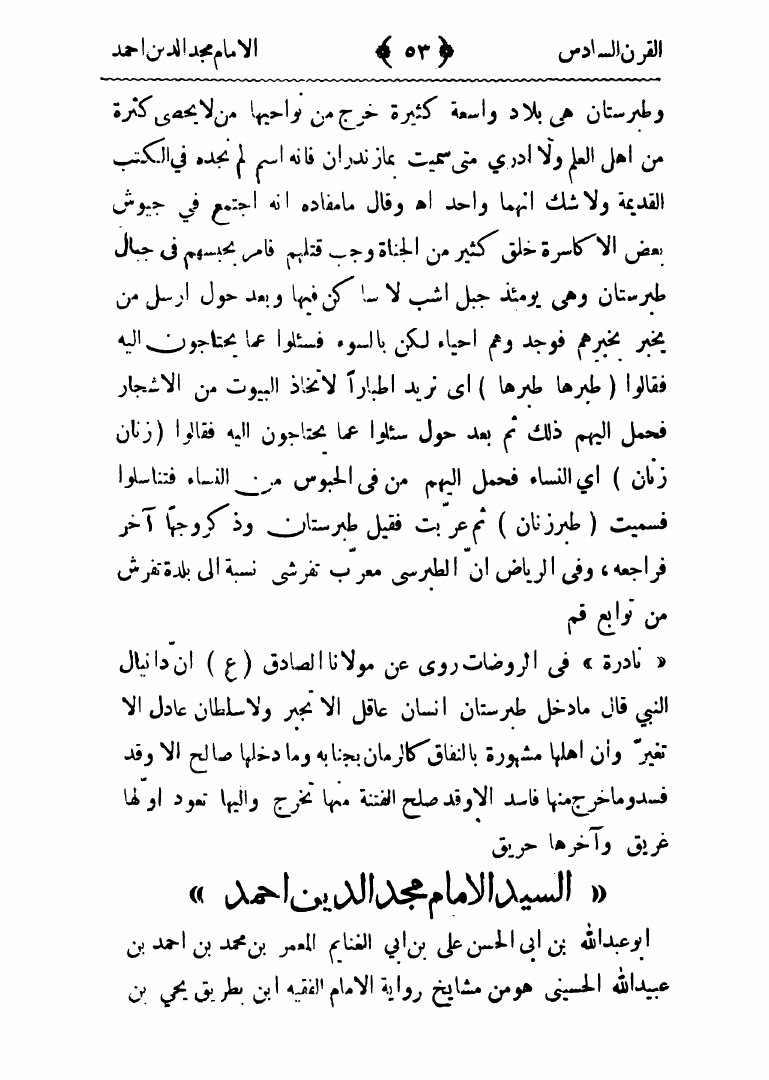 القرن السادس ﴿ ٥٣ ﴾ الامام مجد الدين احمد
وطبرستان هى بلاد واسعة كثيرة خرج من نواحيها من لا يحصى كثرة
من اهل العلم ولا ادري متى سميت بمازندران فانه اسم لم نجده في الكتب
القديمة ولا شك انهما واحد اه وقال مامفاده انه اجتمع في جيوش
بعض الاكاسرة خلق كثير من الجناة وجب قتلهم فامر بحبسهم فى جبال
طبرستان وهى يومئذ جبل اشب لا ساكن فيها وبعد حول ارسل من
يخبر بخبرهم فوجد وهم احياء لكن بالسوء فسئلوا عما يحتاجون اليه
فقالوا ( طبرها طبرها ) اى نريد اطباراً لاتخاذ البيوت من الاشجار
فحمل اليهم ذلك ثم بعد حول سئلوا عما يحتاجون اليه فقالوا ( زنان
زنان ) اي النساء فحمل اليهم من فى الحبوس من النساء فتناسلوا
فسميت ( طبرزنان ) ثم عرّبت فقيل طبرستان وذكر وجهًا آخر
فراجعه ، وفى الرياض انّ الطبرسى معرّب تفرشى نسبة الى بلدة تفرش
من توابع قم
« نادرة » فى الروضات روى عن مولانا الصادق ( ع ) انّ دانيال
النبي قال مادخل طبرستان انسان عاقل الا تجبر ولا سلطان عادل الا
تغيرّ وان اهلها مشهورة بالنفاق كالرمان بجنابه وما دخلها صالح الا وقد
فسد وماخرج منها فاسد الاوقد صلح الفتنة منها تخرج واليها تعود اوّلها
غريق وآخرها حريق
« السيد الامام مجد الدين احمد »
ابو عبدالله بن ابى الحسن على بن ابي الغنايم المعمر بن محمد بن احمد بن
عبيدالله الحسينى هو من مشايخ رواية الامام الفقيه ابن بطريق يحي بن